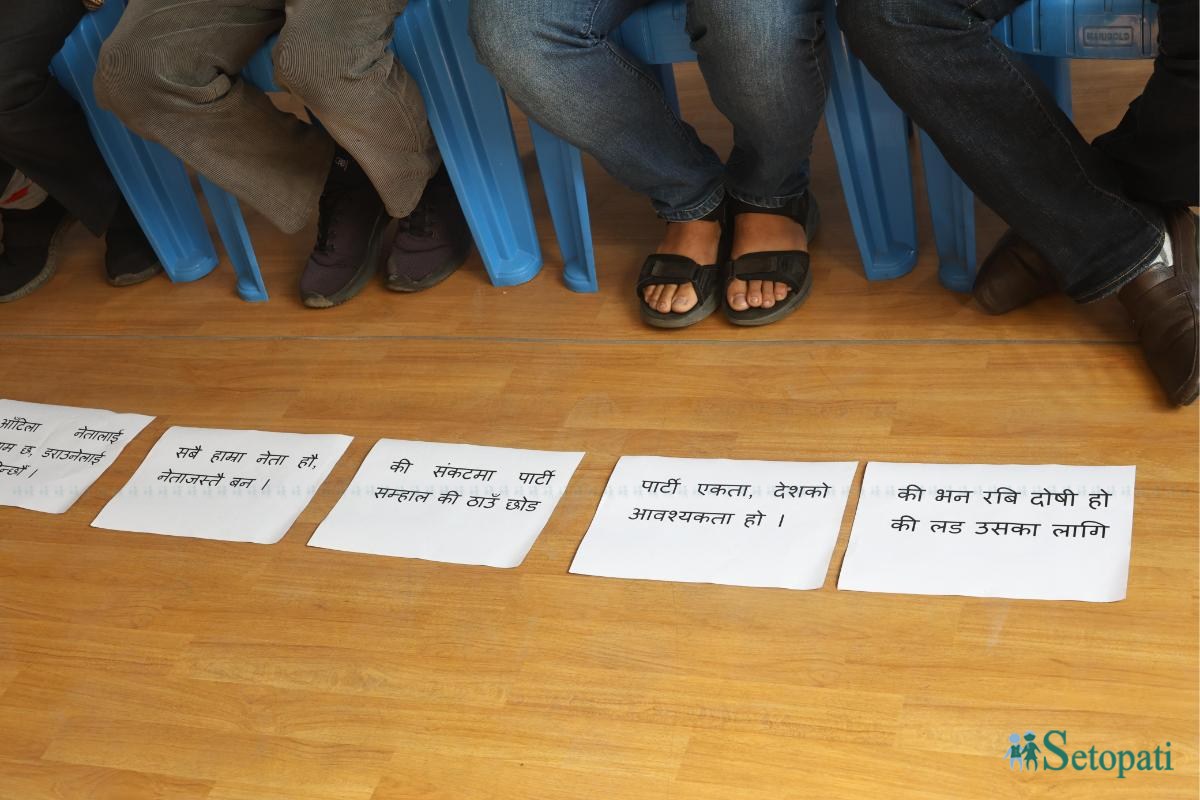 आँटिला नेतालाई
छ, डराउनेलाई
सबै हाम्रा नेता हौ,
नेताजस्तै बन ।
की संकटमा पार्टी
सम्हाल की ठाउँ छोड
पार्टी एकता, देशको
आवश्यकता हो ।
की भन रबि दोषी हो
की लड उसका लागि
MARIGOLD
Setopati